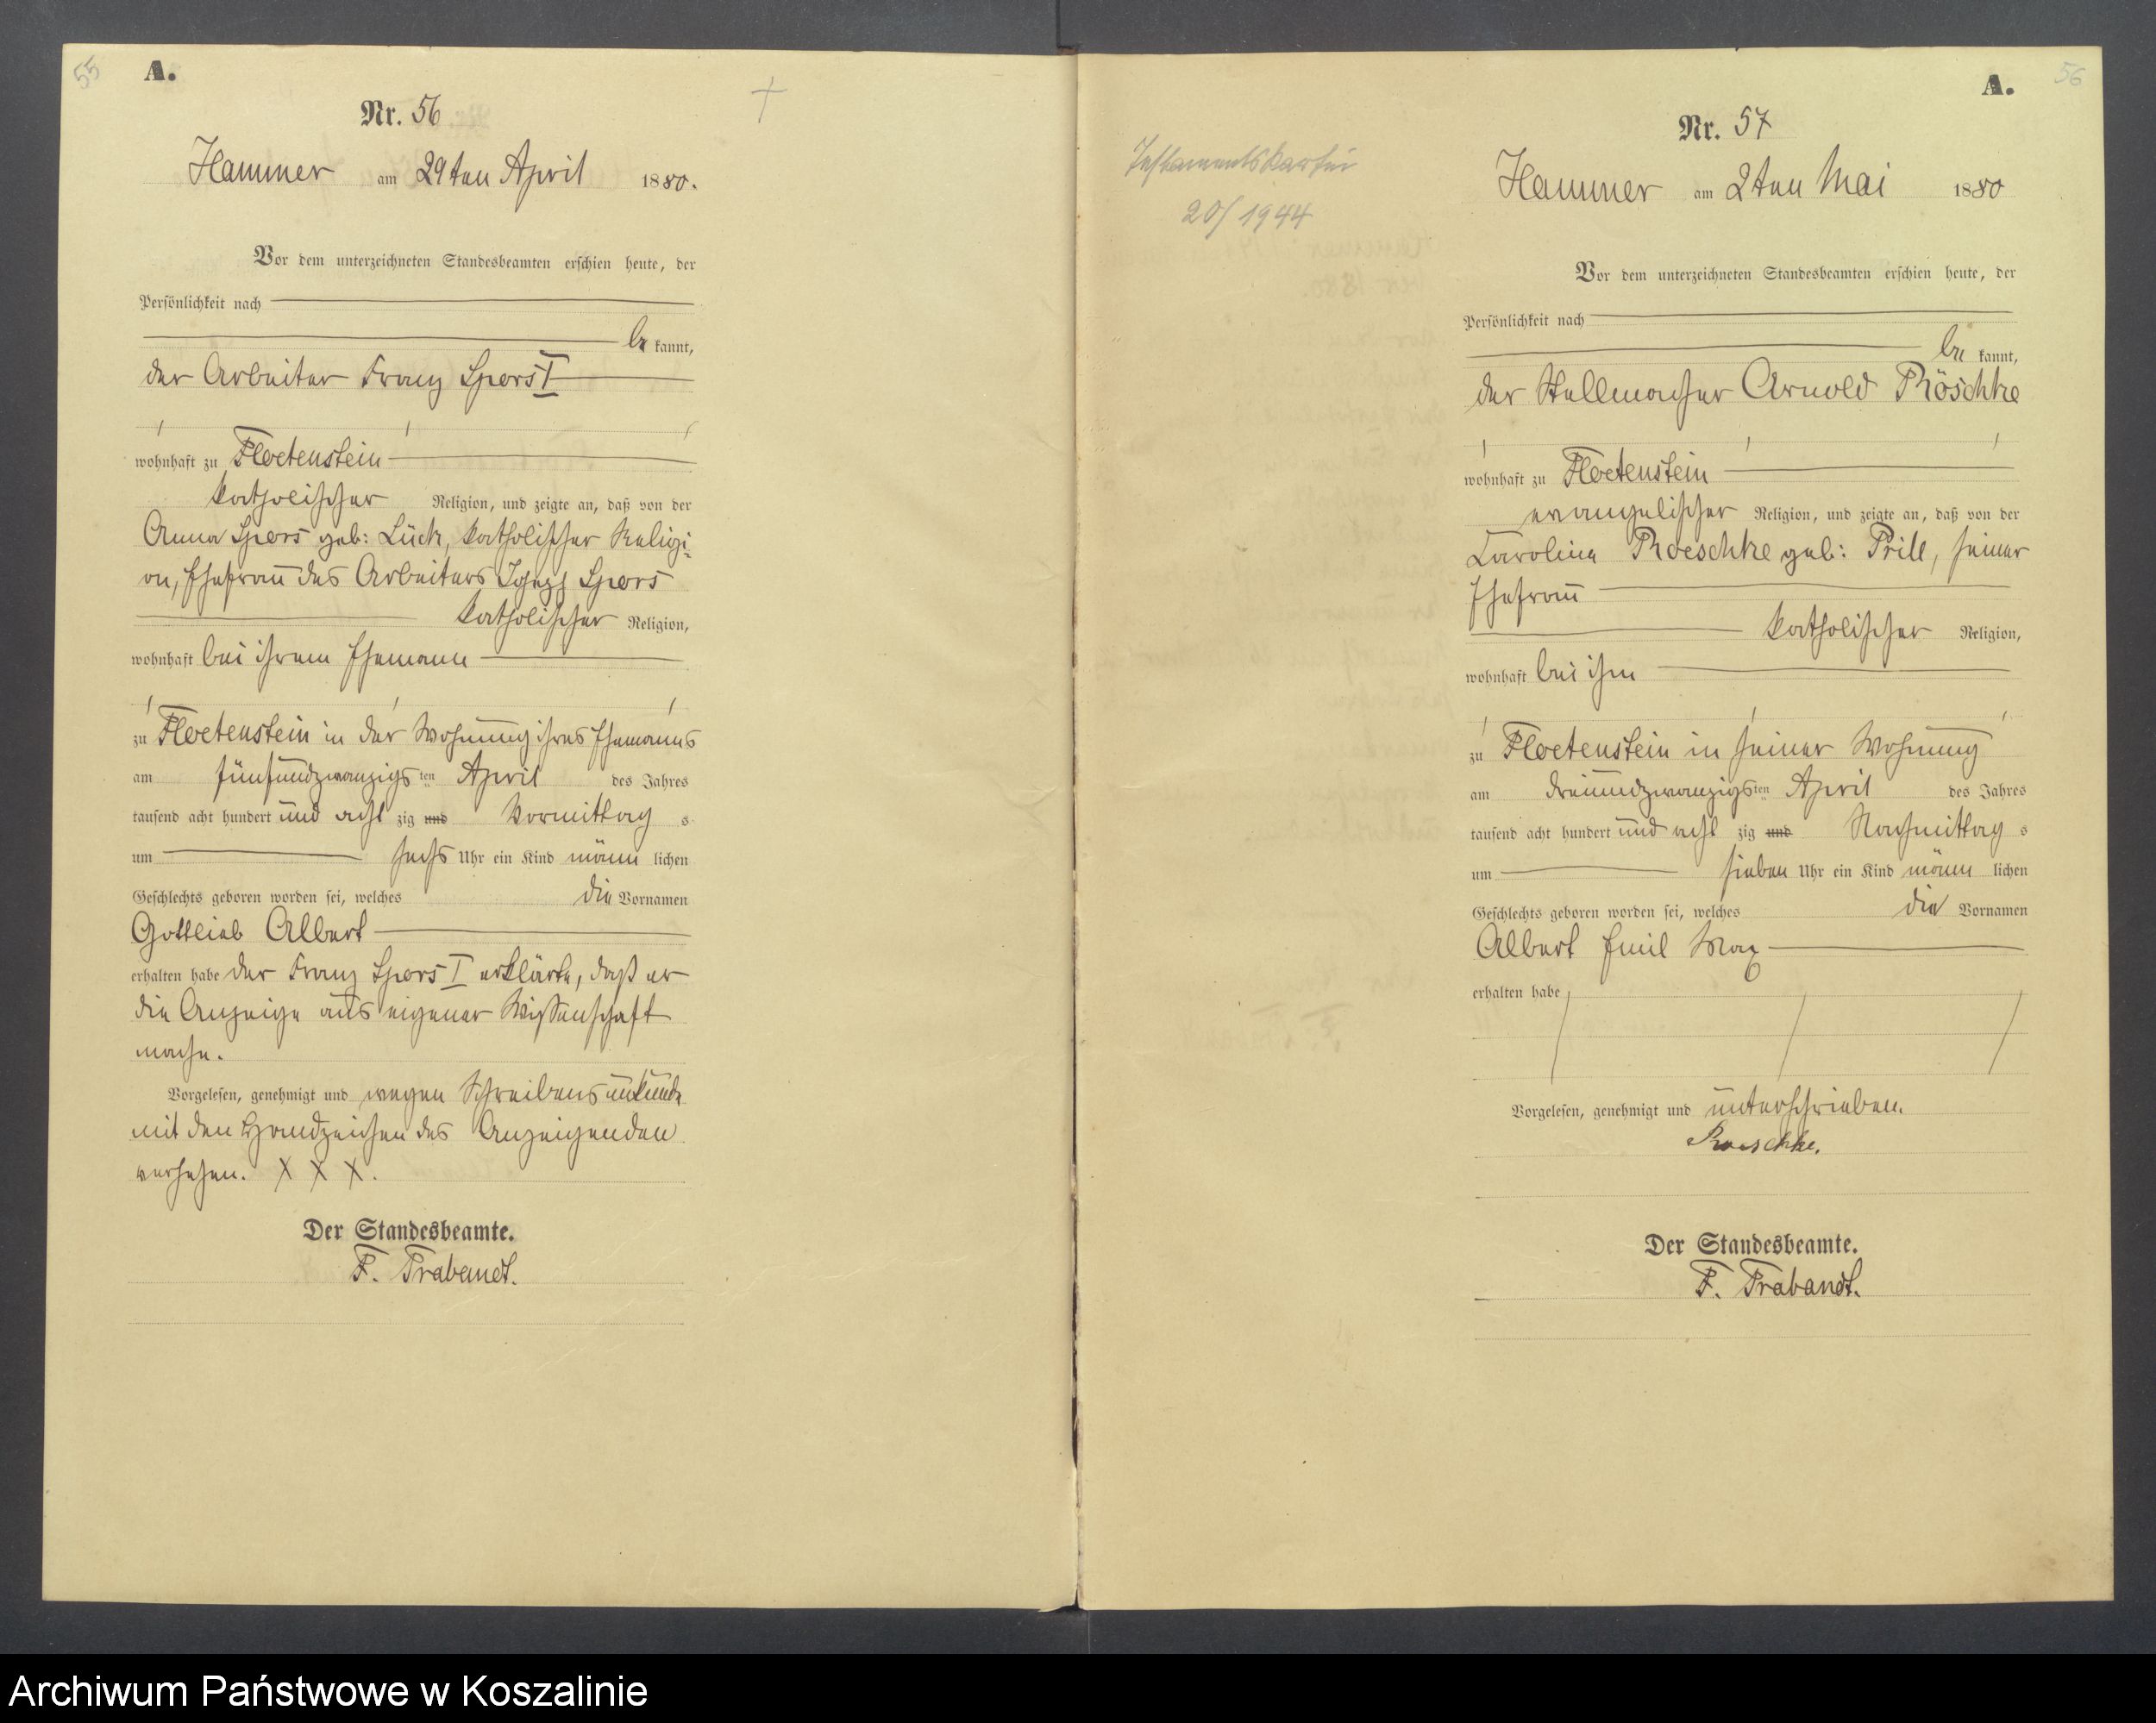 55
A.
Nr. 56
Hammer am 29ten April 1880.
Vor dem unterzeichneten Standesbeamten erschien heute, der
Persönlichkeit nach
be kannt,
der Arbeiter Franz Spors I
wohnhaft zu Floetenstein
katholischer Religion, und zeigte an, daß von der
Anna Spors geb: Lück, katholischer Religi-
on, Ehefrau des Arbeiters Ignatz Spors
katholischer Religion,
wohnhaft bei ihrem Ehemann
zu Floetenstein in der Wohnung ihres Ehemanns
am fünfundzwanzigs ten April des Jahres
tausend acht hundert und acht zig und Vormittag s
um sechs Uhr ein Kind männ lichen
Geschlechts geboren worden sei, welches die Vornamen
Gottlieb Albert
erhalten habe der Franz Spors I erklärte, daß er
die Anzeige aus eigener Wissenschaft
mache.
Vorgelesen, genehmigt und wegen Schreibensunkunde
mit den Handzeichen des Anzeigenden
versehen. X X X.
Der Standesbeamte.
F. Trabandt.
56
A.
Testamentskartei
20/1944
Nr. 57
Hammer am 2ten Mai 1880
Vor dem unterzeichneten Standesbeamten erschien heute, der
Persönlichkeit nach
be kannt,
der Stellmacher Arnold Röschke
wohnhaft zu Floetenstein
evangelischer Religion, und zeigte an, daß von der
Caroline Roeschke geb: Prill, seiner
Ehefrau
katholischer Religion,
wohnhaft bei ihm
zu Floetenstein in seiner Wohnung
am dreiundzwanzigs ten April des Jahres
tausend acht hundert und acht zig und Nachmittag s
um sieben Uhr ein Kind männ lichen
Geschlechts geboren worden sei, welches die Vornamen
Albert Emil Max
erhalten habe
Vorgelesen, genehmigt und unterschrieben.
Roeschke.
Der Standesbeamte.
F. Trabandt.
Archiwum Państwowe w Koszalinie